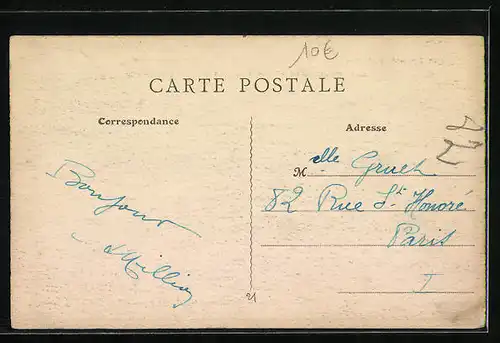 10€
CARTE POSTALE
Correspondance
Adresse
Bonjour
Melle Gruet
82 Rue St Honoré
Paris
I
22
21